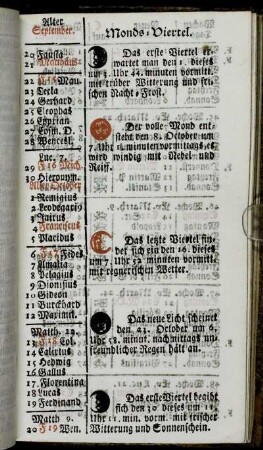 Alter
September.
20 Fausta
21 Matthäus
22 F 15 Mau.
23 Tecla
24 Gerhard
25 Cleophas
26 Cyprian
27 Cosm. D.
28 Wencesl.
Luc. 7.
29 F 16 Mich.
30 Hieronym.
Alter October
1 Remigius
2 Leodegarig
3 Jairus
4 Franciscus
5 Placidus
6 F 17 Fides
7 Amalia
8 Pelagius
9 Dionysius
10 Gideon
11 Burckhard
12 Maximil.
Matth. 22.
13 F 18 Col.
14 Calixtus
15 Hedwig
16 Gallus
17 Florentina
18 Lucas
19 Ferdinand
Matth 9.
20 F 19 Wen.
Monds-Viertel.
Das erste Viertel er-
wartet man den 1. dieses
um 3. Uhr 44. minuten vormitt.
mit trüber Witterung und fri-
schen Nacht-Frost.
Der volle Mond ent-
steht den 8. October um
7. Uhr minuten vormittags, es
wird windig mit Nebel und
Reiff.
Das letzte Viertel fin-
det sich ein den 16. dieses
um 7. Uhr 52 minuten vormitt.
mit regnerischen Wetter.
Das neue Licht scheinet
den 23. October um 6.
Uhr 58. minut. nachmittags un-
freundlicher Regen hält an.
Das erste Viertel begibt
sich den 30 dieses um 11.
Uhr 11. min. vorm. mit frischer
Witterung und Sonnenschein.